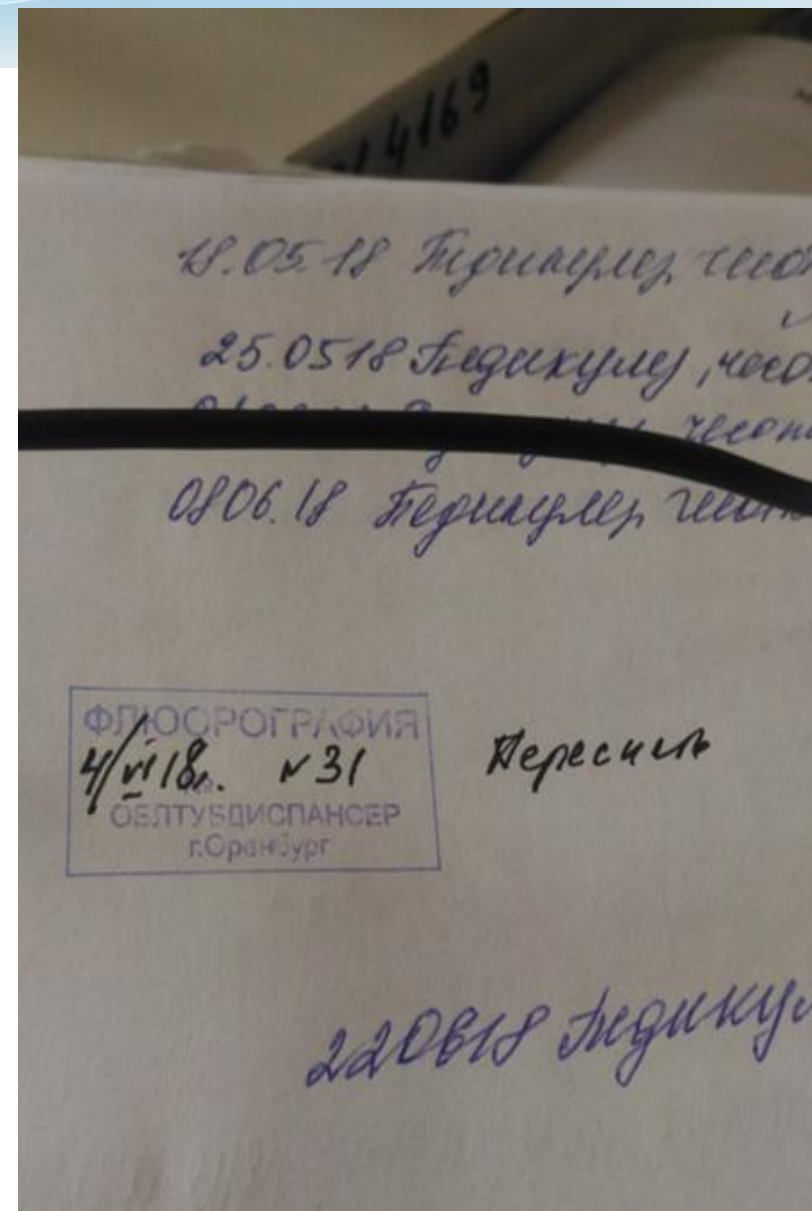 4169
18.05.18 Педикулез, чесот
25.0518 Педикулез, чесо
чесот
0806.18 Педикулез, чесот
ФЛЮОРОГРАФИЯ
4/VI18г. №31
ОБЛТУБДИСПАНСЕР
г.Оренбург
Переснять
220618 Педикул